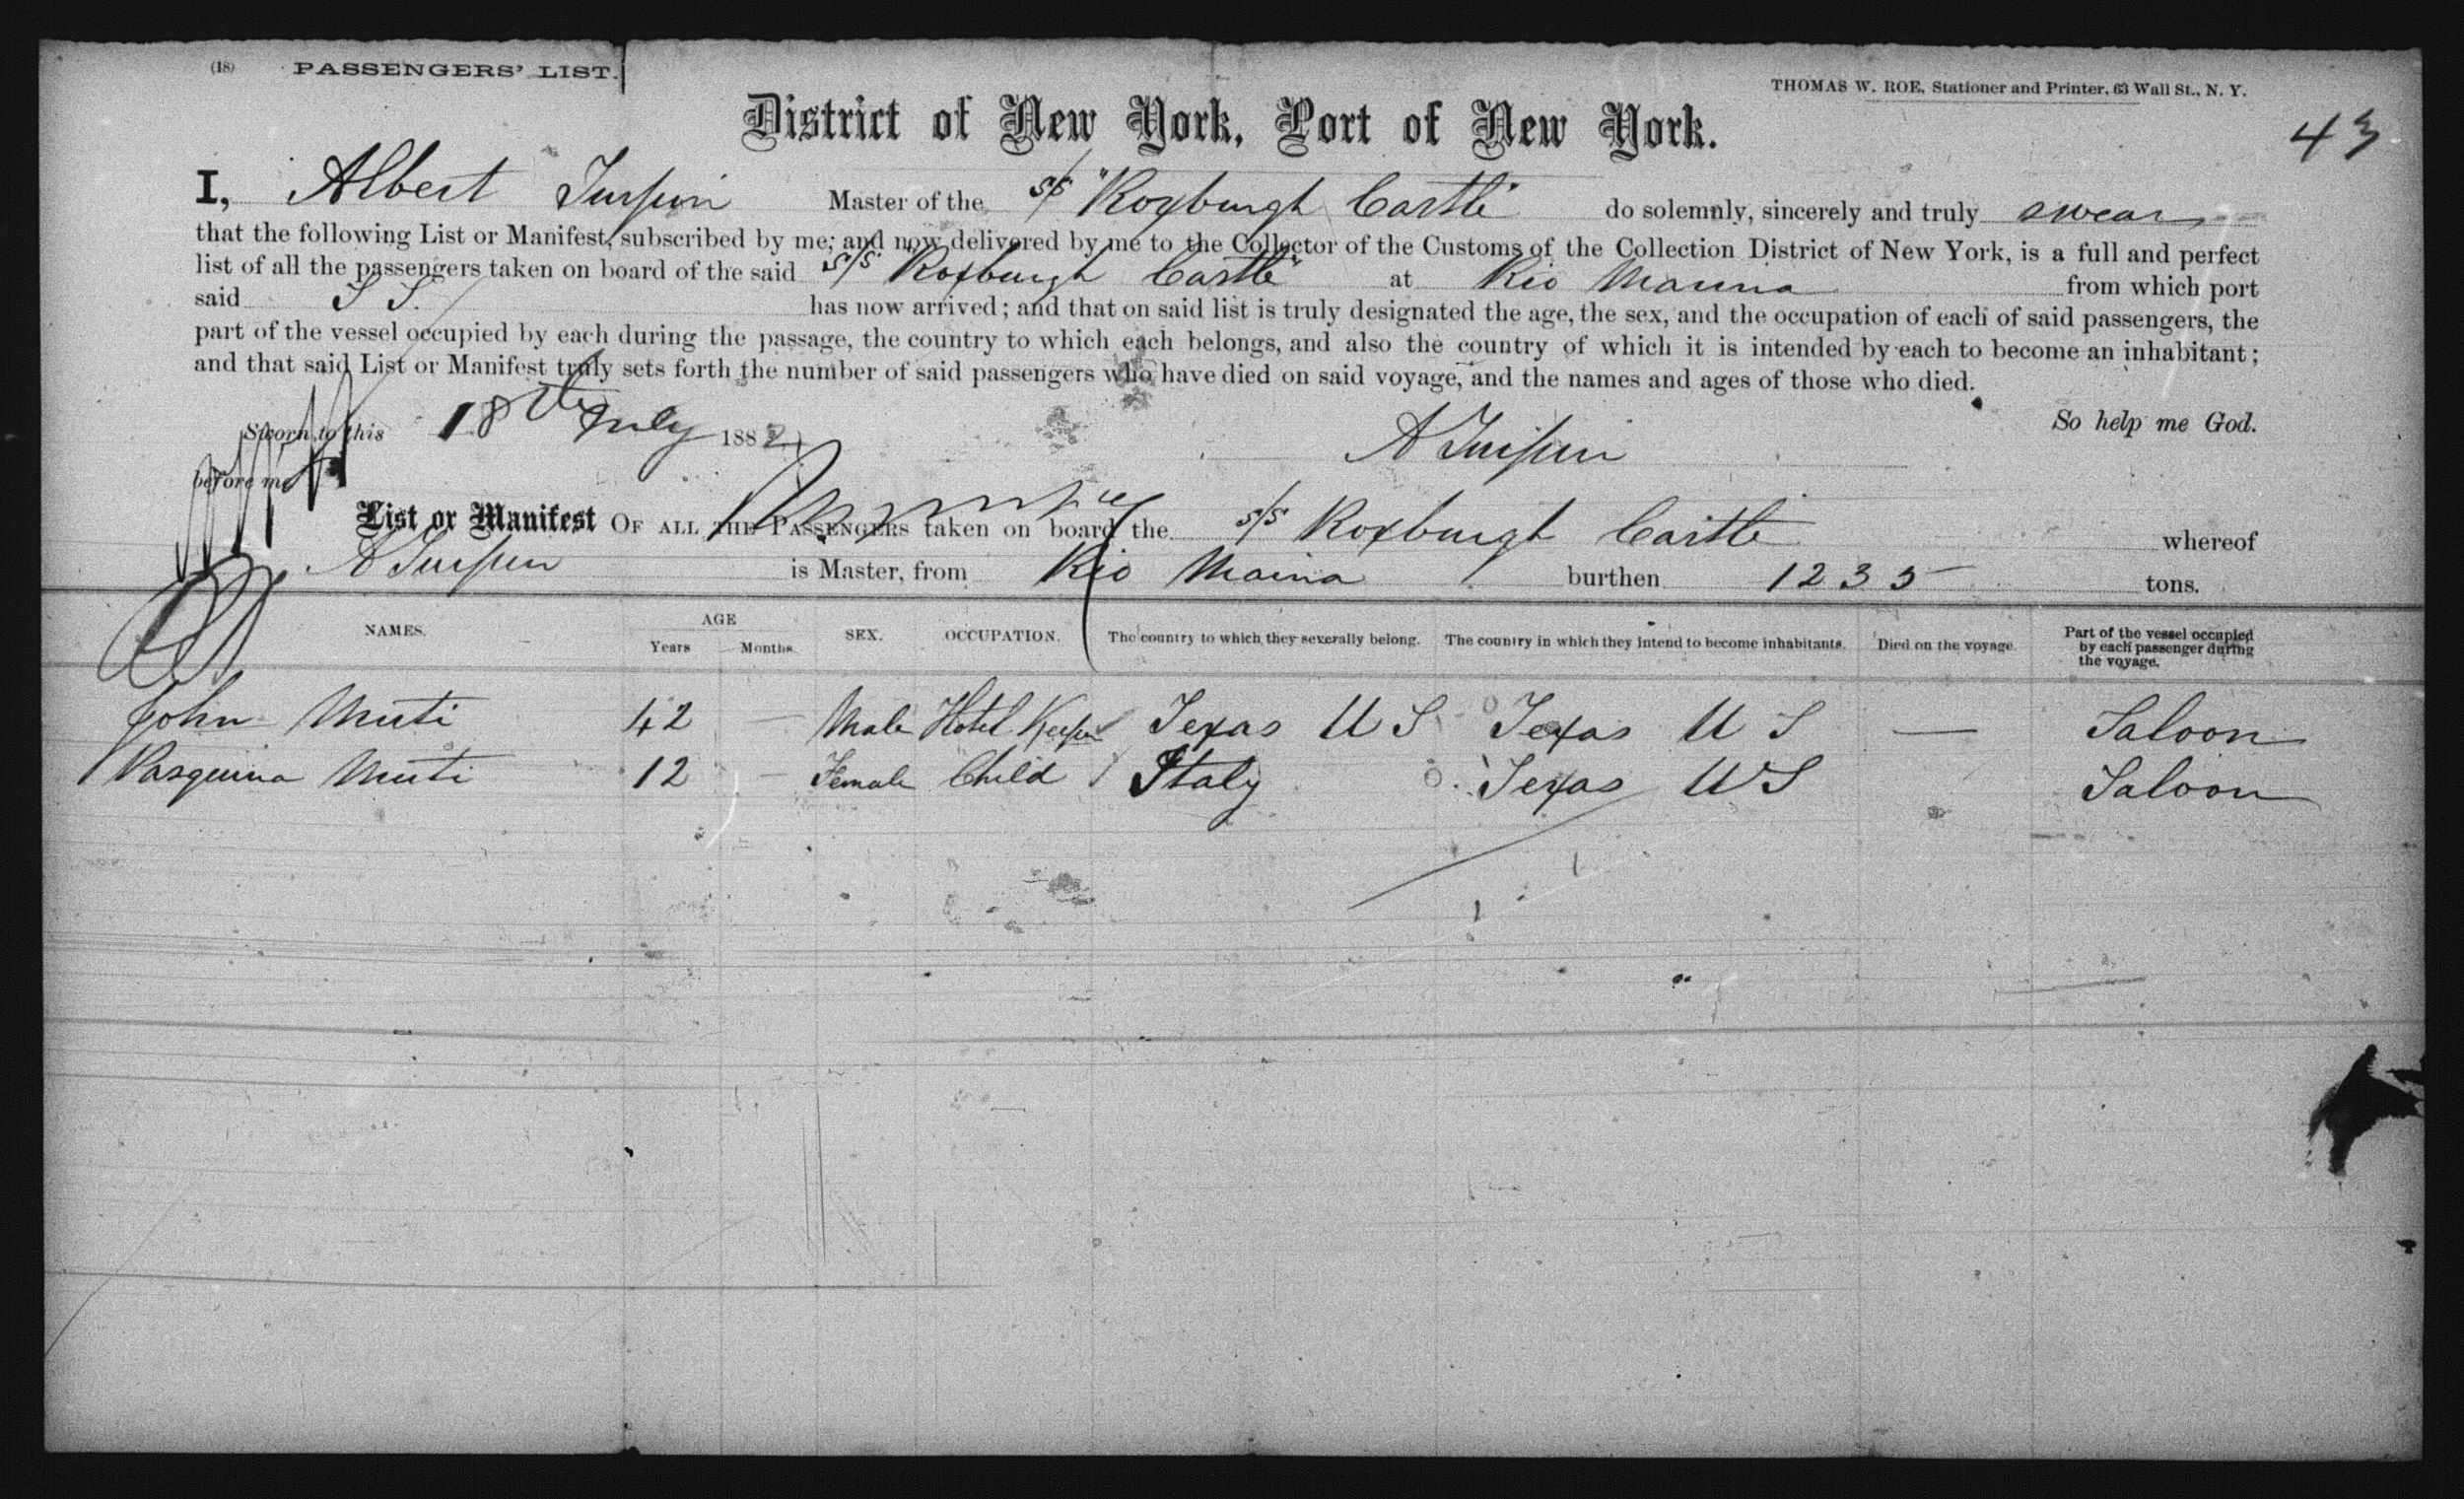 (18) PASSENGERS' LIST.
THOMAS W. ROE, Stationer and Printer, 63 Wall St., N. Y.
District of New York, Port of New York.
43
I, Albert Turpin Master of the s/s "Roxburgh Castle" do solemnly, sincerely and truly swear
that the following List or Manifest, subscribed by me, and now delivered by me to the Collector of the Customs of the Collection District of New York, is a full and perfect
list of all the passengers taken on board of the said s/s Roxburgh Castle" at Rio Marina from which port
said S S. has now arrived; and that on said list is truly designated the age, the sex, and the occupation of each of said passengers, the
part of the vessel occupied by each during the passage, the country to which each belongs, and also the country of which it is intended by each to become an inhabitant;
and that said List or Manifest truly sets forth the number of said passengers who have died on said voyage, and the names and ages of those who died.
So help me God.
Sworn to this 18th July 1882
A Turpin
before me
List or Manifest OF ALL THE PASSENGERS taken on board the s/s Roxburgh Castle whereof
A Turpin is Master, from Rio Maina burthen 1235 tons.
NAMES. AGE Years Months. SEX. OCCUPATION. The country to which they severally belong. The country in which they intend to become inhabitants. Died on the voyage. Part of the vessel occupied by each passenger during the voyage.
John Muti 42 — Male Hotel Keeper Texas U S Texas U S — Saloon
Pasquina Muti 12 — Female Child Italy Texas U S Saloon